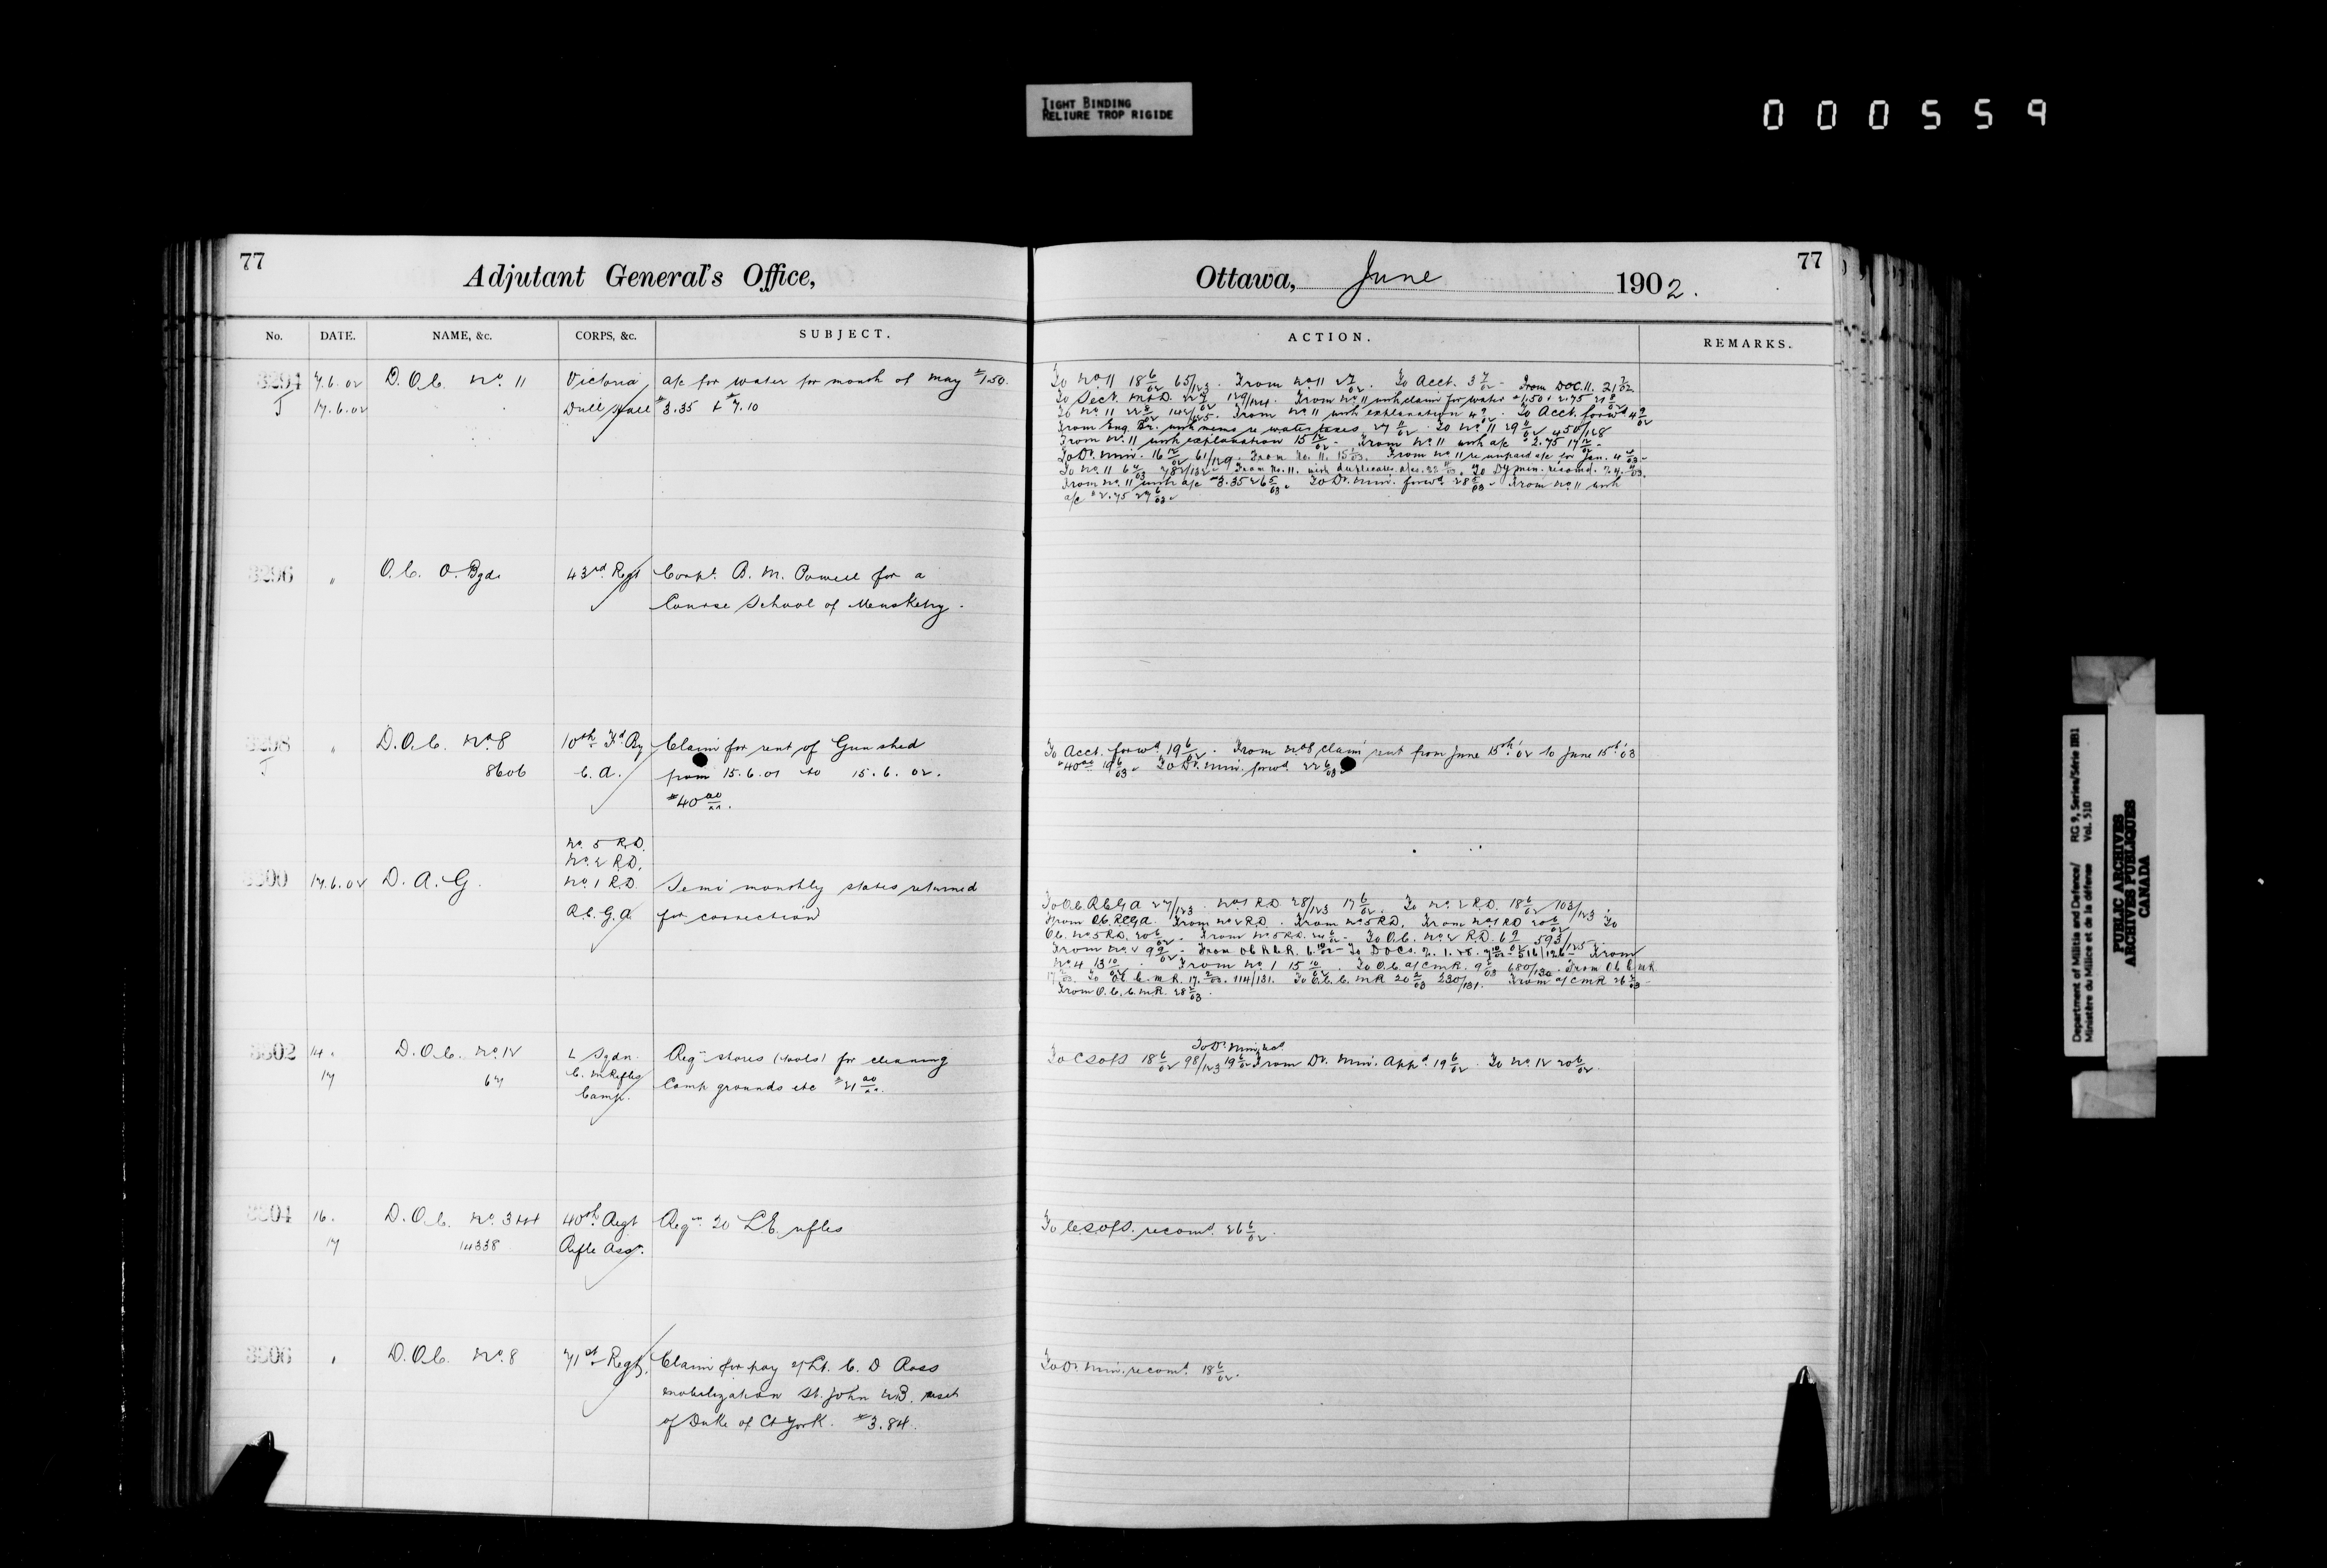 TIGHT BINDING
RELIURE TROP RIGIDE
000559
77
Adjutant General's Office,
No. DATE. NAME, &c. CORPS, &c. SUBJECT.
3294 7.6.02 D.O.C. No. 11 Victoria a/c for water for month of May $1.50.
J 17.6.02 Drill Hall $3.35 & $7.10
3296 " O.C. O. Bgde 43rd Regt Corpl. B. M. Powell for a
Course School of Musketry.
3298 " D.O.C. No. 8 10th Fd By Claim for rent of Gun shed
J 8606 C.A. from 15.6.01 to 15.6.02.
$40 00/00.
No. 5 R.D.
No. 2 R.D.
3300 17.6.02 D.A.G. No. 1 R.D. Semi monthly states returned
R.C.G.A. for correction
3302 14. D.O.C. No. 12 L Sqdn Reqn stores (tools) for cleaning
17 67 C. M Rifles Camp grounds etc $21 00/00.
Camp.
3304 16. D.O.C. No. 3 & 4 40th Regt Reqn 20 L.E. rifles
17 14338 Rifle Assn.
3306 " D.O.C. No. 8 71st Regt. Claim for pay of Lt. C. D Ross
mobilization St. John N.B. visit
of Duke of C & York. $3.84.
77
Ottawa, June 1902.
ACTION. REMARKS.
To No 11 18 6/02 65/123. From No 11 2 7/02. To Acct. 3 7/02 - From DOC. 11. 21 7/02.
From No. 11 with claim for water $1.50 & 2.75
From No 11 with explanation 4 9/02. To Acct. forwd 4 9/02
From Eng. Br. with memo re water taxes 27 11/02 To No 11 29 11/02 450/128
From No. 11 with explanation 15 12/02 - From No 11 with a/c $2.75 17 12/02 -
To Dy. Min. 16 12/02 61/129. From No. 11. From No 11 re unpaid a/c for Jan.
From No. 11. with duplicates a/cs. To Dy Min. recomd.
From No. 11 with a/c $3.35 26 5/03. To Dy. Min. forwd 28 5/03 - From No 11 with
a/c $2.75 27 6/03.
To Acct. forwd 19 6/02. From No 8 claim rent from June 15th '02 to June 15th '03
$40 00 19 6/03. To Dy. Min. forwd 22 6/03
To O.C. R.C.G.A 27/123. No 1 R.D. 28/123 17 6/02. To No. 2 R.D. 18 6/02 103/123.
From O.C. RCGA. From No 2 R.D. From No 5 R.D. From No 1 RD 20 6/02 To
O.C. No 5 R.D. 20 6/02. From No 5 R.D. 24 6/02 - To O.C. No. 2 R.D. 6 9/02 593/125.
No. 4 13 10/02. From No. 1 15 10/02. To O.C. a/CMR. 9 2/03 680/130. From O.C. CMR.
17 2/03. To O.C. C.M.R. 17. 2/03. 114/131. To O.C. C.M.R 20 2/03 230/131. From a/CMR 26 2/03 -
From O.C. C.M.R. 28 2/03.
To Dy. Min. recd
To CSofS 18 6/02 98/123 19 6/02 From Dy. Min. Appd 19 6/02. To No. 12 20 6/02.
To CSofS. recomd. 26 6/02.
To Dy Min. recomd. 18 6/02.
Department of Militia and Defence/ RG 9, Series/Série IIB1
Ministère du Milice et de la défense Vol. 510
PUBLIC ARCHIVES
ARCHIVES PUBLIQUES
CANADA